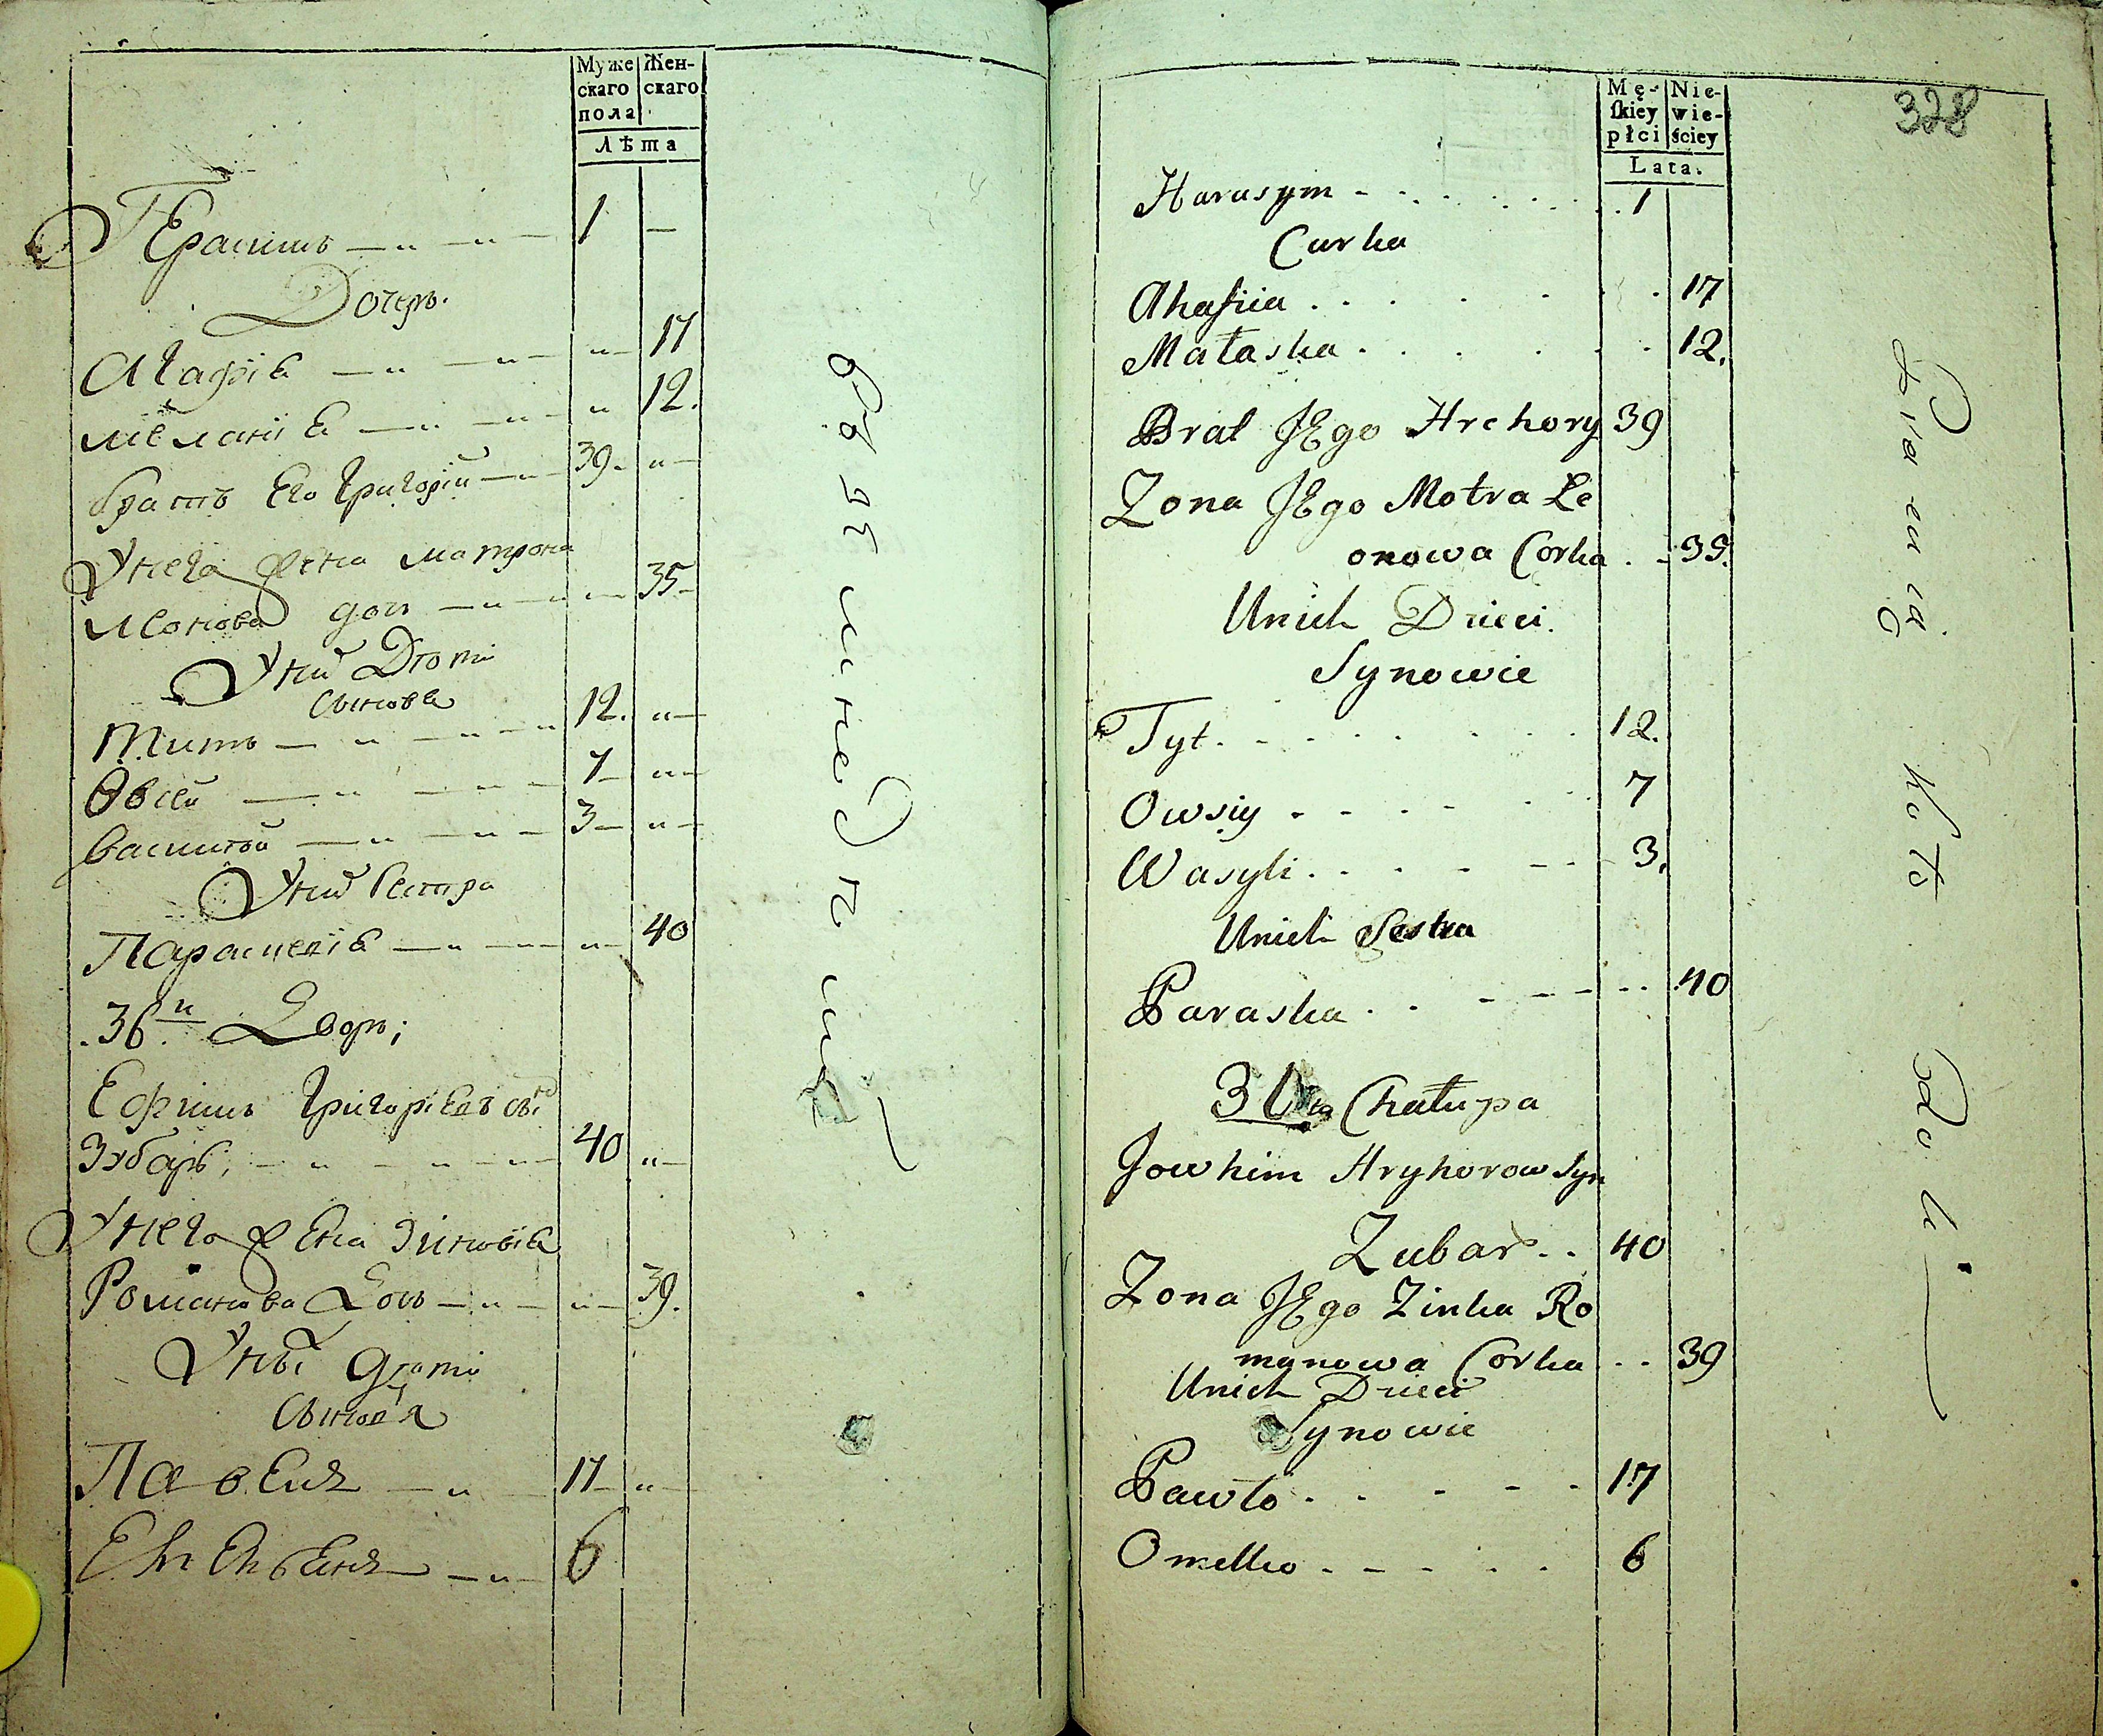 Муже
скаго
пола
Жен-
скаго
Лѣта
Герасимъ 1 —
Дочерь
Агафія 17
Меланія 12.
братъ Его Григорій 39
Унего жена матрона
Леонова доч 35
Уних Дѣти
Сыновя
Титъ 12.
Овсей 7
василей 3
Уних Сестра
Параскевія 40
36й Дворъ;
Ефимъ Григоріевъ сы
Зубарь 40
Унего жена Зиновія
Романова Доч 39.
Уних дѣти
Сыновя
Павелъ 17
Емельянъ 6
328
Mę-
skiey
płci
Nie-
wie-
ściey
Lata.
Harasym 1
Curka
Ahafiia 17
Małaska 12.
Brat JEgo Hrehory 39
Zona JEgo Motra Le
onowa Corka 35.
Unich Dzieci
Synowie
Tyt 12.
Owsiy 7
Wasyli 3.
Unich Sestra
Paraska 40
36ta Chałupa
Jowhim Hryhorow Syn
Zubar 40
Zona JEgo Zinka Ro
manowa Corka 39
Unich Dzieci
Synowie
Pawło 17
Omelko 6